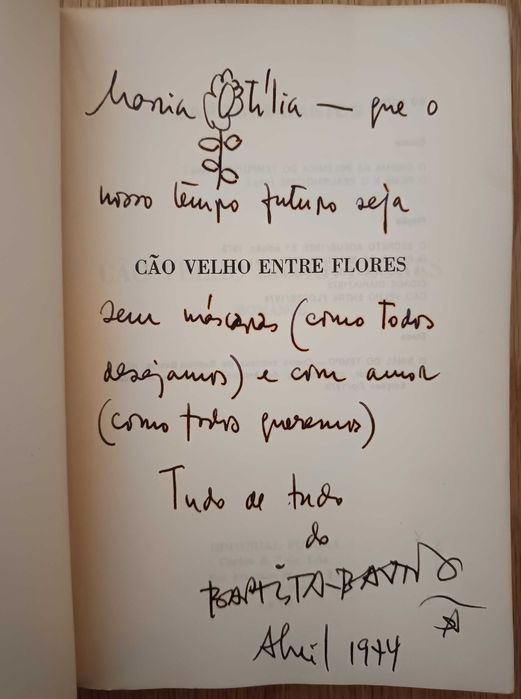 Maria Otília — que o
nosso tempo futuro seja
CÃO VELHO ENTRE FLORES
sem máscaras (como todos
desejamos) e com amor
(como todos queremos)
Tudo de tudo
do
BAPTISTA-BASTOS
Abril 1974